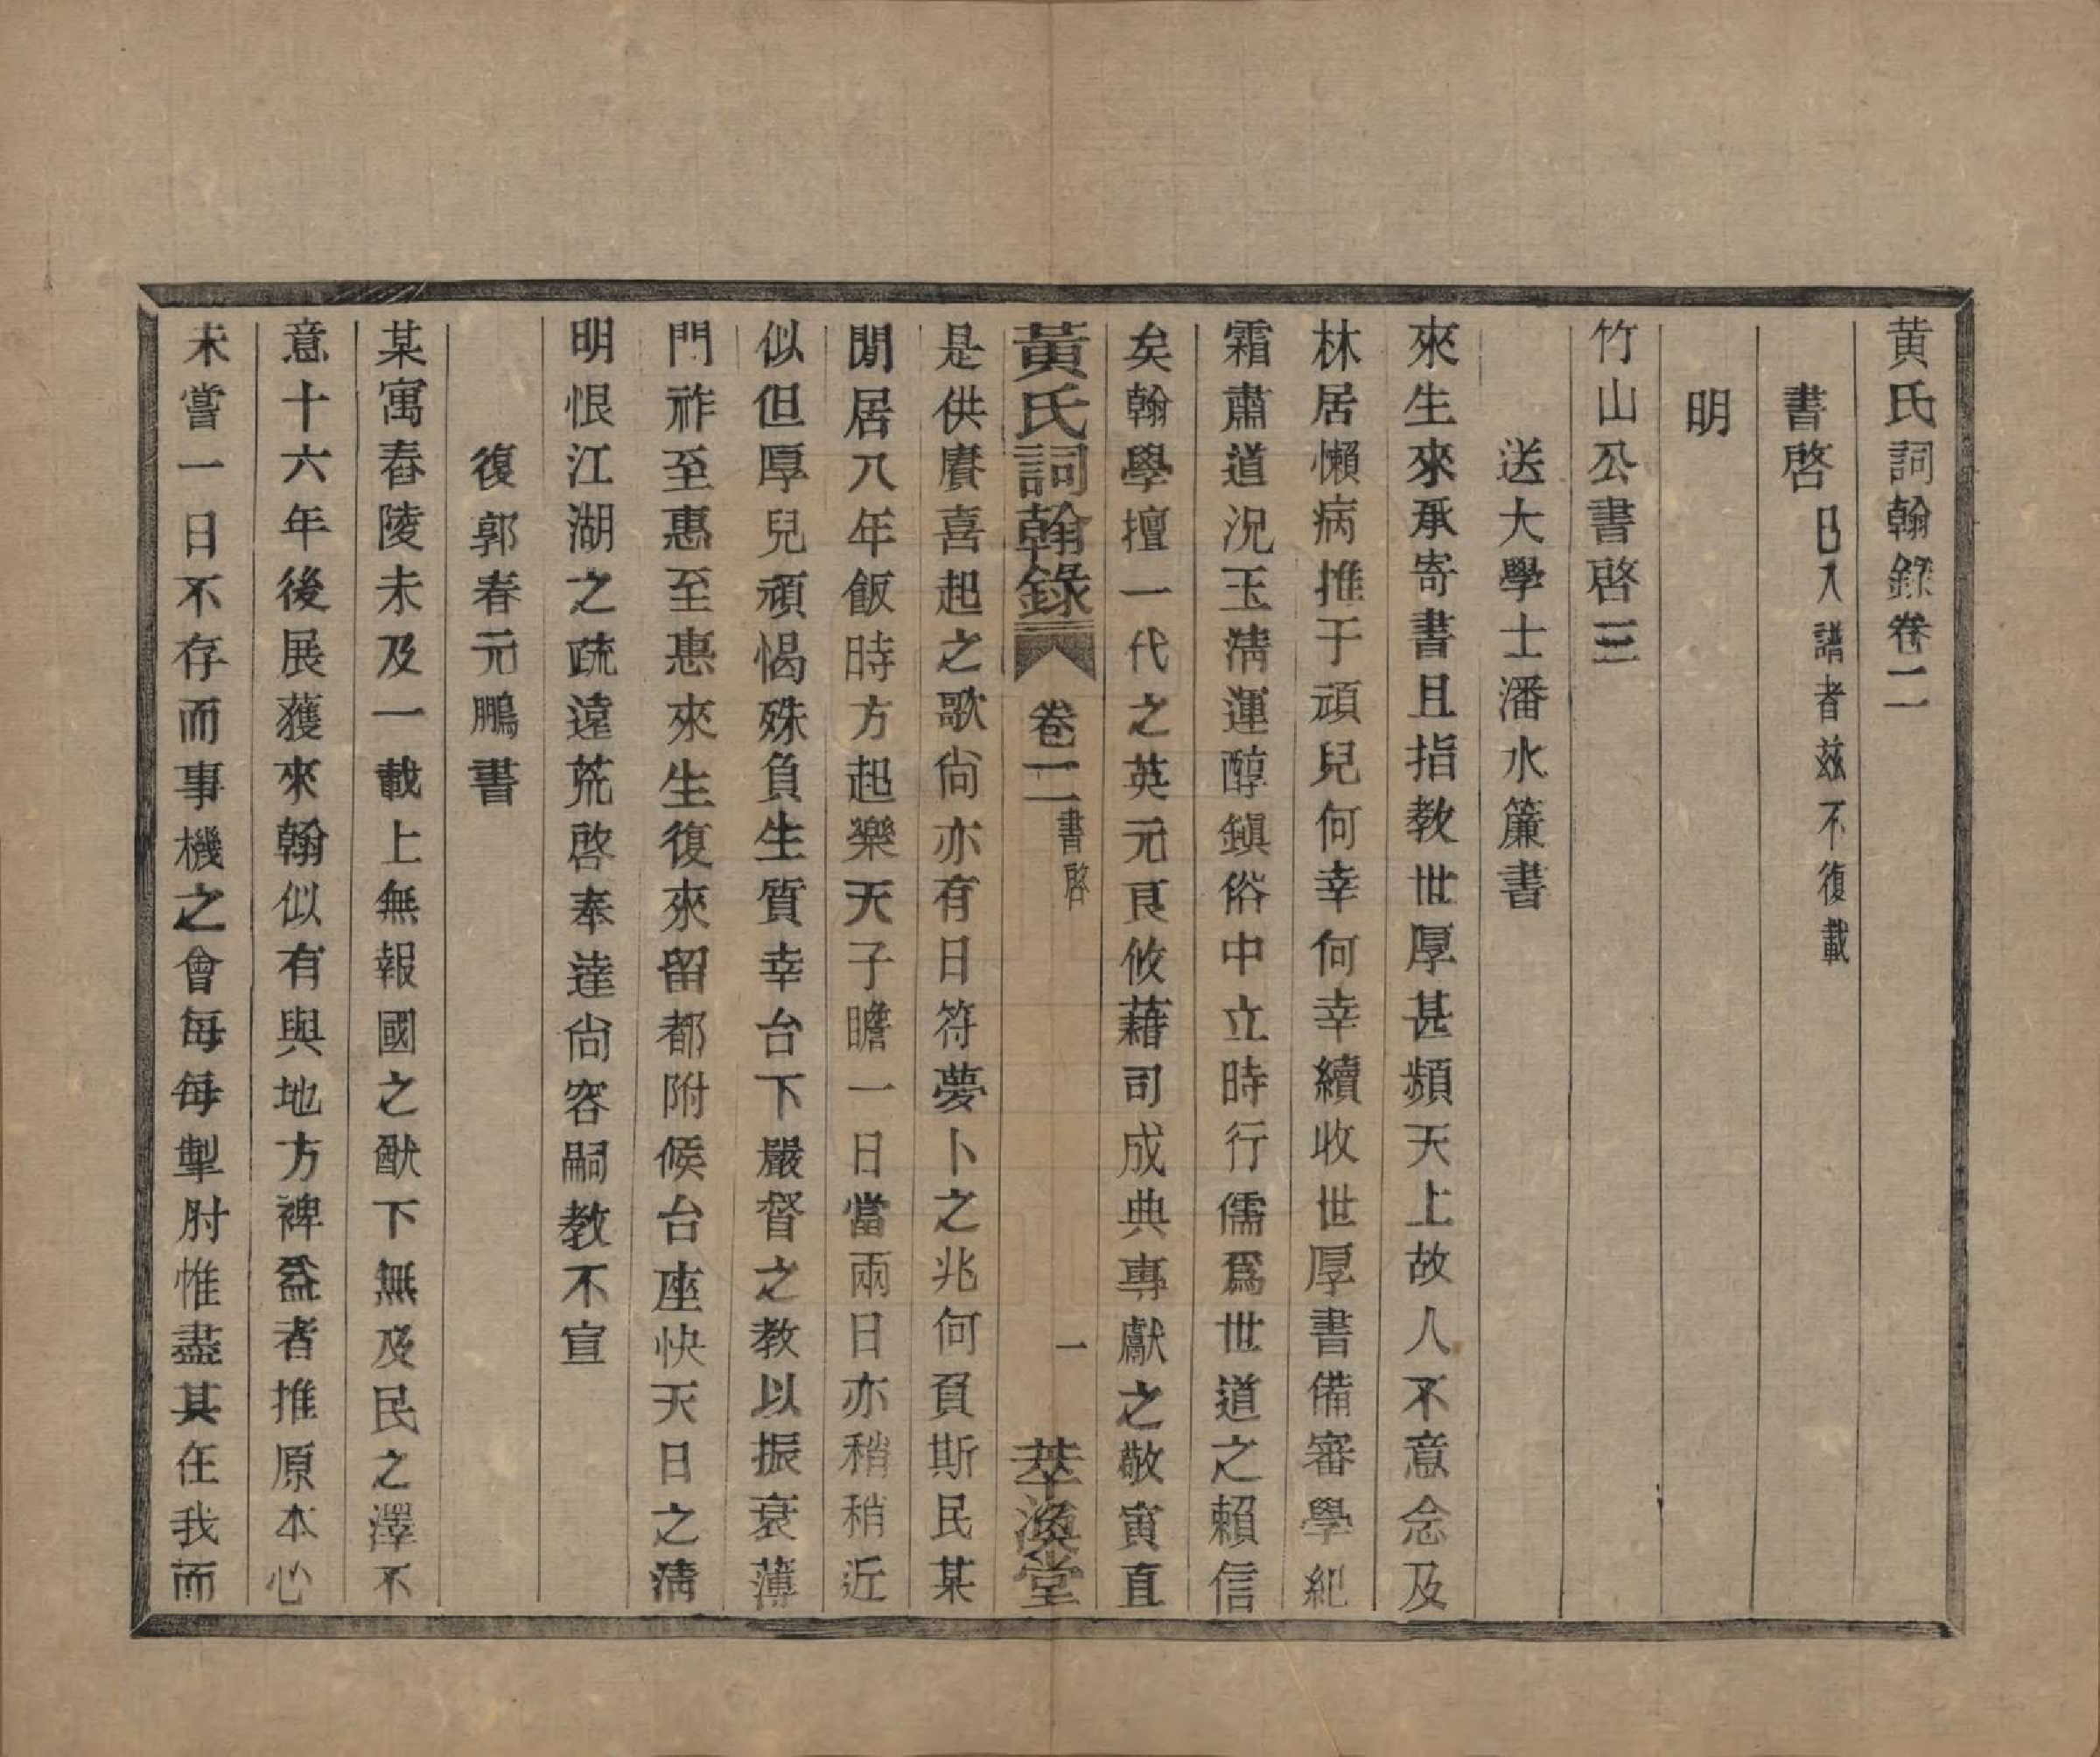 黄氏詞翰錄卷二
書啓 已入譜者茲不復載
明
竹山公書啓三
送大學士潘水簾書
來生來承寄書且指教世厚甚頻天上故人不意念及
林居懶病推于頑兒何幸何幸續收世厚書備審學紀
霜肅道況玉淸運醇鎭俗中立時行儒爲世道之賴信
矣翰學擅一代之英元良攸藉司成典專獻之敬寅直
黃氏詞翰錄 卷二 書啓 一 萃渙堂
是供賡喜起之歌尙亦有日符夢卜之兆何負斯民某
閒居八年飯時方起樂天子瞻一日當兩日亦稍稍近
似但厚兒頑愒殊負生質幸台下嚴督之教以振衰薄
門祚至惠至惠來生復來留都附候台座快天日之淸
明恨江湖之疏遠荒啓奉達尙容嗣教不宣
復郭春元鵬書
某寓舂陵未及一載上無報國之猷下無及民之澤不
意十六年後展獲來翰似有與地方裨益者推原本心
未嘗一日不存而事機之會每每掣肘惟盡其在我而